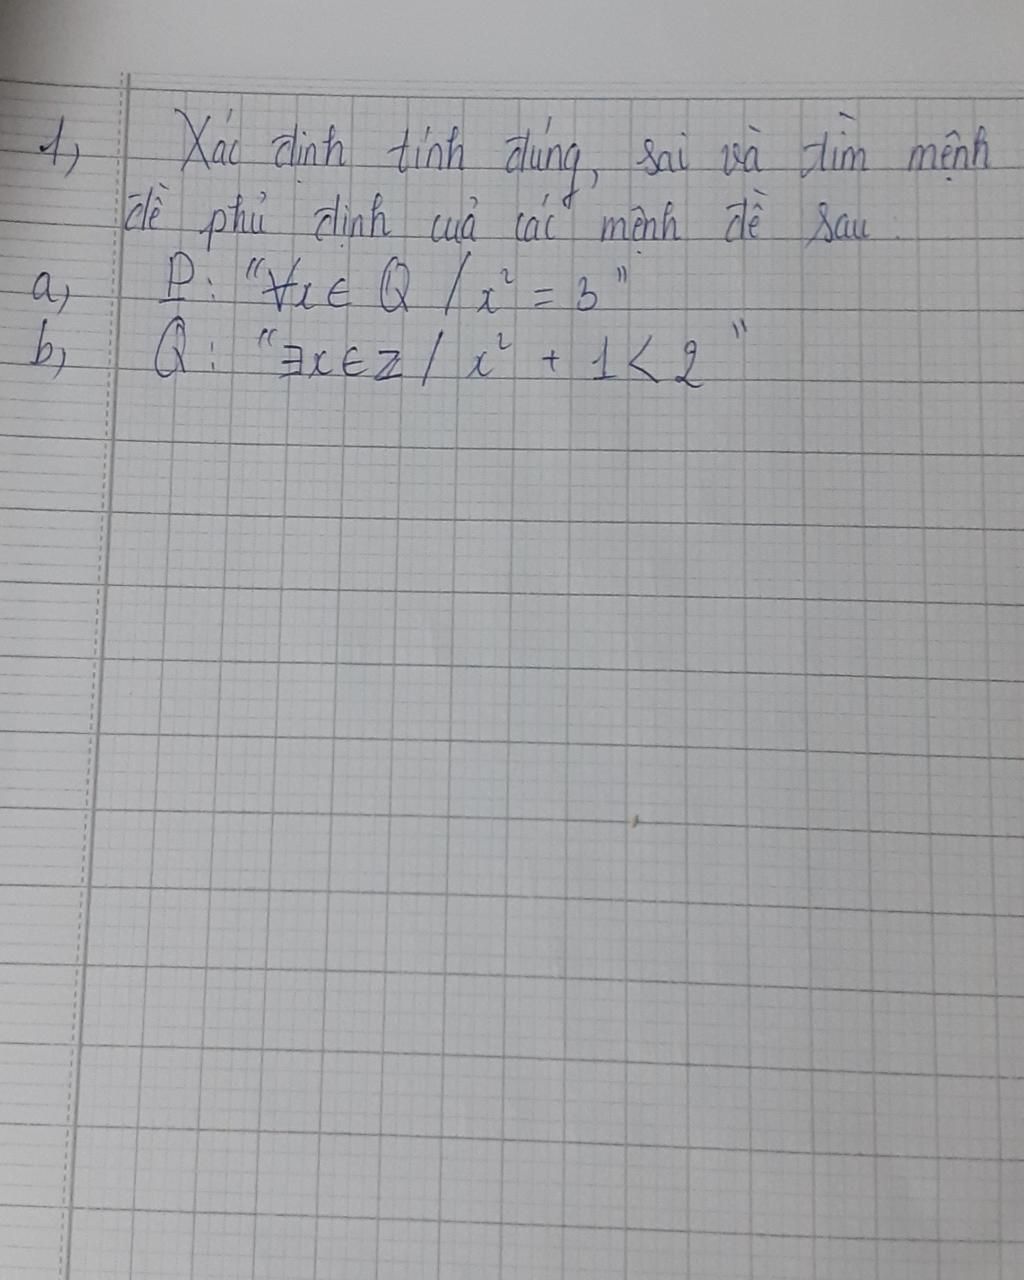 1, Xác định tính đúng, sai và tìm mệnh
đề phủ định của các mệnh đề sau.
a, P: "∀x ∈ Q / x² = 3"
b, Q: "∃x ∈ Z / x² + 1 < 2"